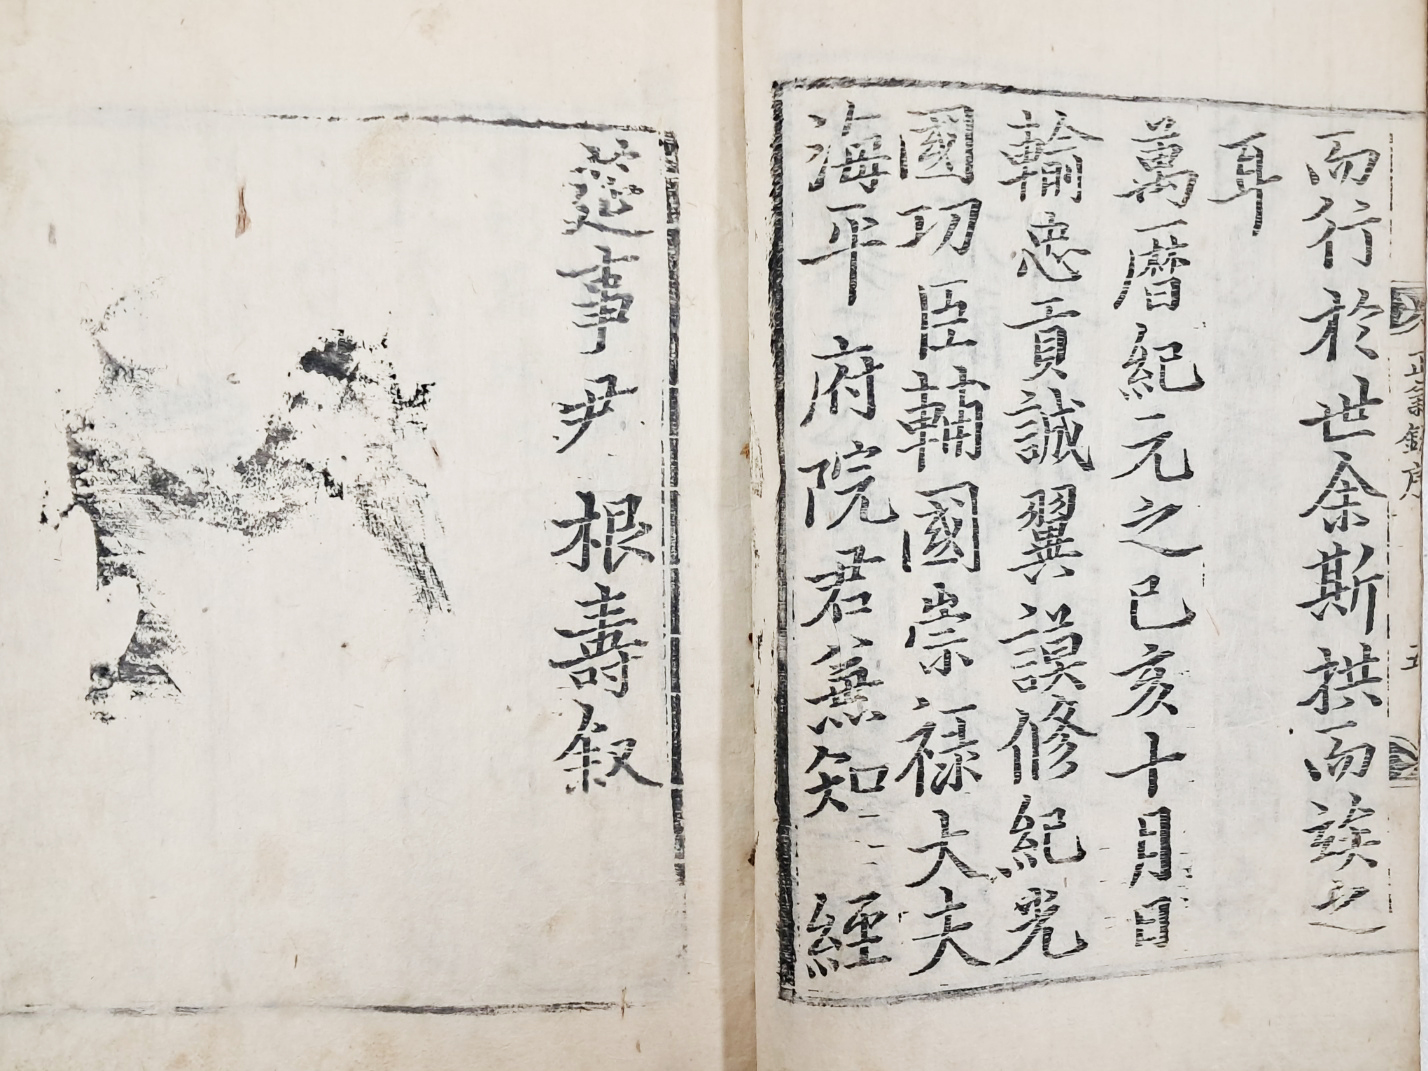 而行於世余斯拱而竢之
耳
萬曆紀元之己亥十月日
輸忠貢誠翼謨修紀光
國功臣輔國崇祿大夫
海平府院君兼知 經
筵事尹根壽叙
正氣錄序
五